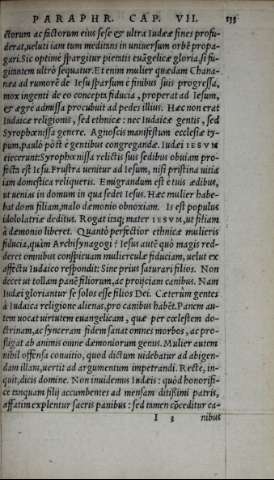 PARAPHR. CAP. VII. 133
ctorum ac fictorum eius sese & ultra Iudææ fines profu-
derat, ueluti iam tum meditans in uniuersum orbē propa-
gari. Sic optime spargitur pientis euāgelicæ gloria, si fu-
gitantem ultrò sequatur. Et enim mulier quædam Chana-
næa ad rumorē de Iesu sparsum è finibus suis progressa,
mox ingenti de eo concepta fiducia, properat ad Iesum,
& ægre admissa procubuit ad pedes illius. Hæc non erat
Iudaicæ religionis, sed ethnicæ: nec Iudaicæ gentis, sed
Syrophœnissa genere. Agnoscis manifestum ecclesiæ ty-
pum, paulò pòst è gentibus congregandæ. Iudæi IESVM
eiecerunt: Syrophœnissa relictis suis sedibus obuiam pro-
fecta est Iesu. Frustra uenitur ad Iesum, nisi pristinæ uitæ
iam domestica reliqueris. Emigrandum est è tuis ædibus,
ut uenias in domum in qua sedet Iesus. Hæc mulier habe-
bat dom filiam, malo dæmonio obnoxiam. Is est populus
idololatriæ deditus. Rogat itaq; mater IESVM, ut filiam
à dæmonio liberet. Quantò perfectior ethnicæ mulieris
fiducia, quàm Archisynagogi? Iesus autē quò magis red-
deret omnibus conspicuam mulierculæ fiduciam, uelut ex
affectu Iudaico respondit: Sine prius saturari filios. Non
decet ut tollam panē filiorum, ac proijciam canibus. Nam
Iudæi gloriantur se solos esse filios Dei. Cæterùm gentes
à Iudaica religione alienas, pro canibus habēt. Panem au-
tem uocat uirtutem euangelicam, quæ per cœlestem do-
ctrinam, ac synceram fidem sanat omnes morbos, ac pro-
fligat ab animis omne dæmoniorum genus. Mulier autem
nihil offensa conuitio, quod dictum uidebatur ad abigen-
dam illam, uertit ad argumentum impetrandi. Recte, in-
quit, dicis domine. Non inuidemus Iudæis: quòd honorifi-
ce tanquam filij accumbentes ad mensam ditissimi patris,
affatim explentur sacris panibus: sed tamen cōceditur ca-
I 3 nibus